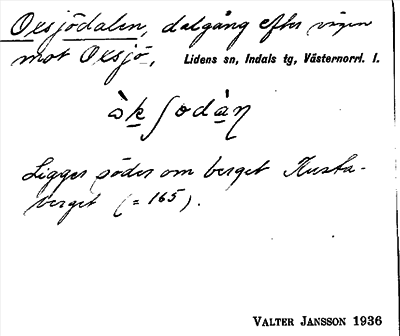 Oxsjödalen, dalgång efter vägen
mot Oxsjö, Lidens sn, Indals tg, Västernorrl. l.
òk̲ʃodàη
Ligger söder om berget Kusta-
berget (= 165).
VALTER JANSSON 1936